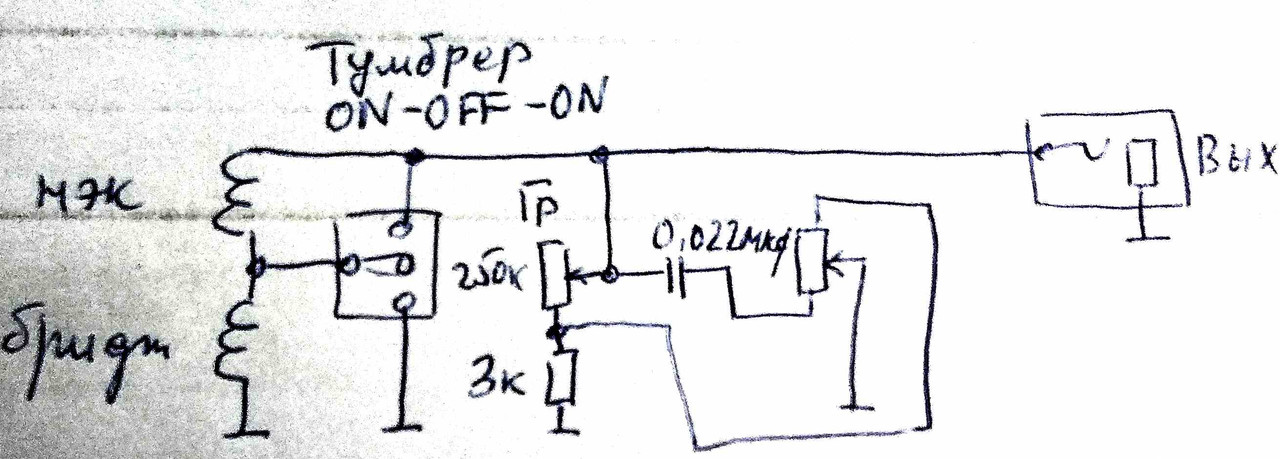 Тумбрер
ON-OFF-ON
Вых
нэк
Гр
0,022мкф
250к
бридж
3к